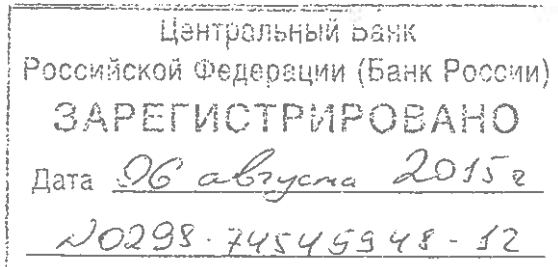 Центральный Банк
Российской Федерации (Банк России)
ЗАРЕГИСТРИРОВАНО
Дата 06 августа 2015 г
№0298-74545948-12